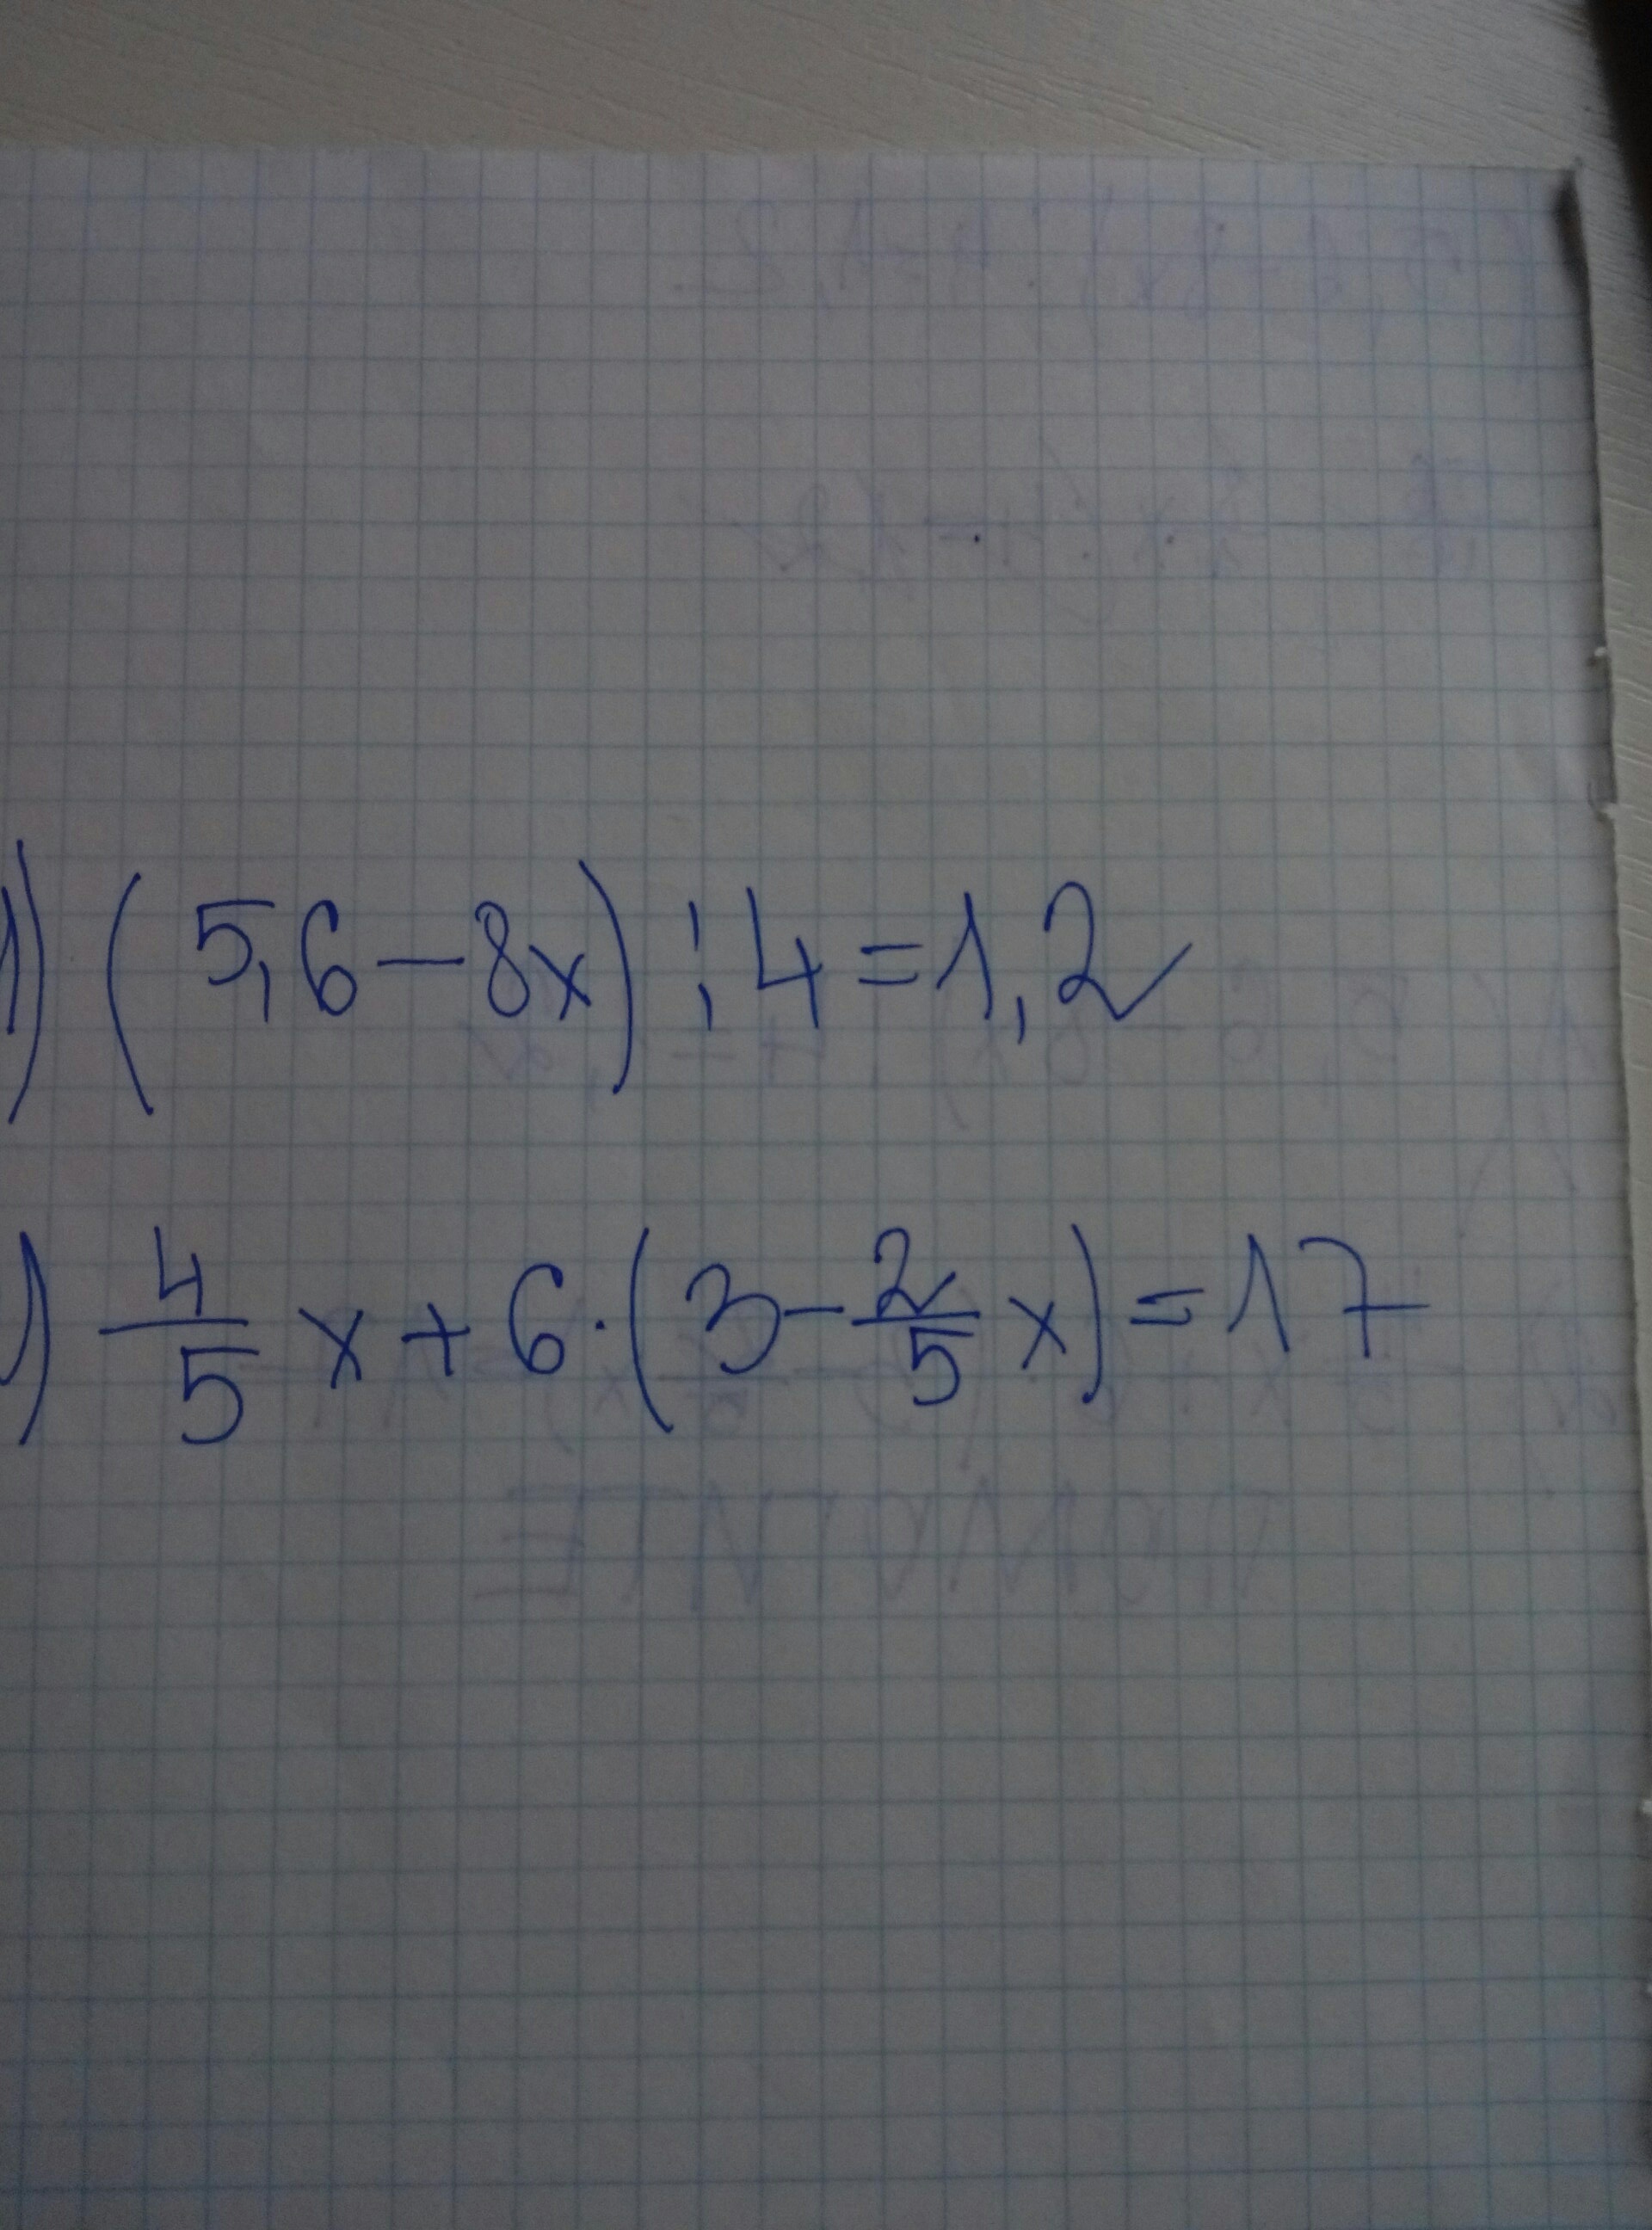 1) (5,6-8x):4=1,2
) 4/5 x+6·(3-2/5 x)=17